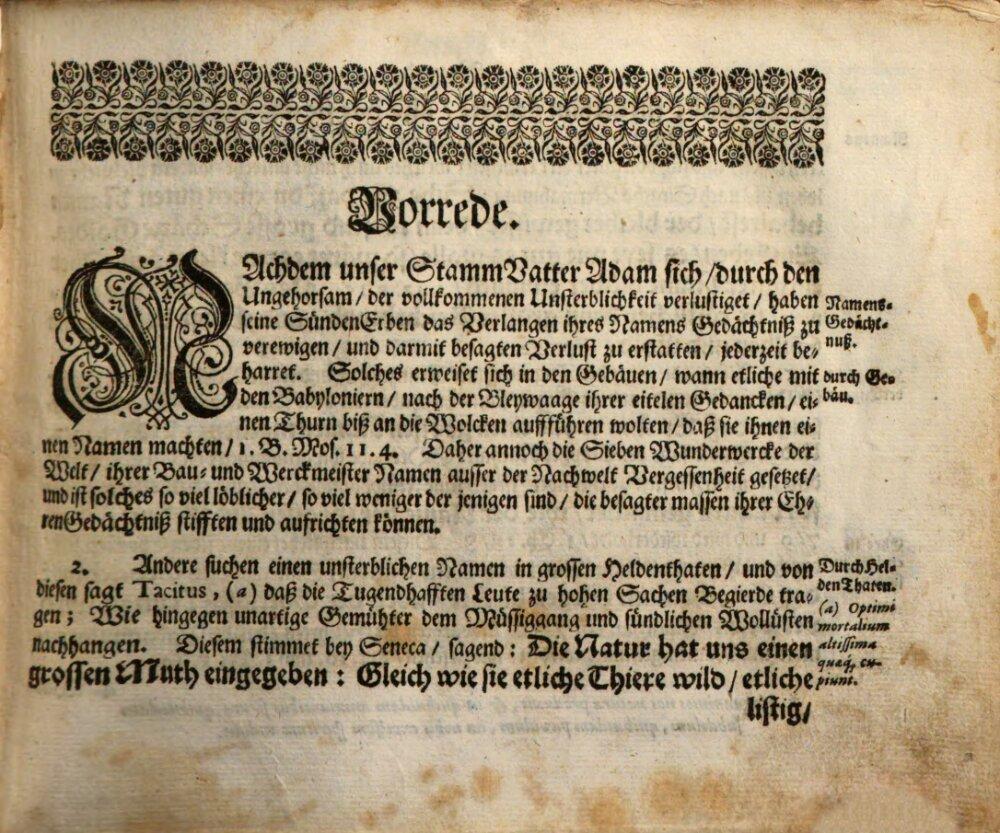 Vorrede.
NAchdem unser StammVatter Adam sich / durch den
Ungehorsam / der vollkommenen Unsterblichkeit verlustiget / haben
seine SündenErben das Verlangen ihres Namens Gedächtniß zu
verewigen / und darmit besagten Verlust zu erstatten / jederzeit be-
harret. Solches erweiset sich in den Gebäuen / wann etliche mit
den Babyloniern / nach der Bleywaage ihrer eitelen Gedancken / ei-
nen Thurn biß an die Wolcken auffführen wolten / daß sie ihnen ei-
nen Namen machten / 1. B. Mos. 11. 4. Daher annoch die Sieben Wunderwercke der
Welt / ihrer Bau- und Werckmeister Namen ausser der Nachwelt Vergessenheit gesetzet /
und ist solches so viel löblicher / so viel weniger der jenigen sind / die besagter massen ihrer Eh-
renGedächtniß stifften und aufrichten können.
Namens-
Gedächt-
nuß.
durch Ge-
bäu.
2. Andere suchen einen unsterblichen Namen in grossen Heldenthaten / und von
diesen sagt Tacitus, (a) daß die Tugendhafften Leute zu hohen Sachen Begierde tra-
gen ; Wie hingegen unartige Gemühter dem Müssiggang und sündlichen Wollüsten
nachhangen. Diesem stimmet bey Seneca / sagend : Die Natur hat uns einen
grossen Muth eingegeben : Gleich wie sie etliche Thiere wild / etliche
listig /
Durch Hel-
den Thaten.
(a) Optimi
mortalium
altissima
quæq, cu-
piunt.